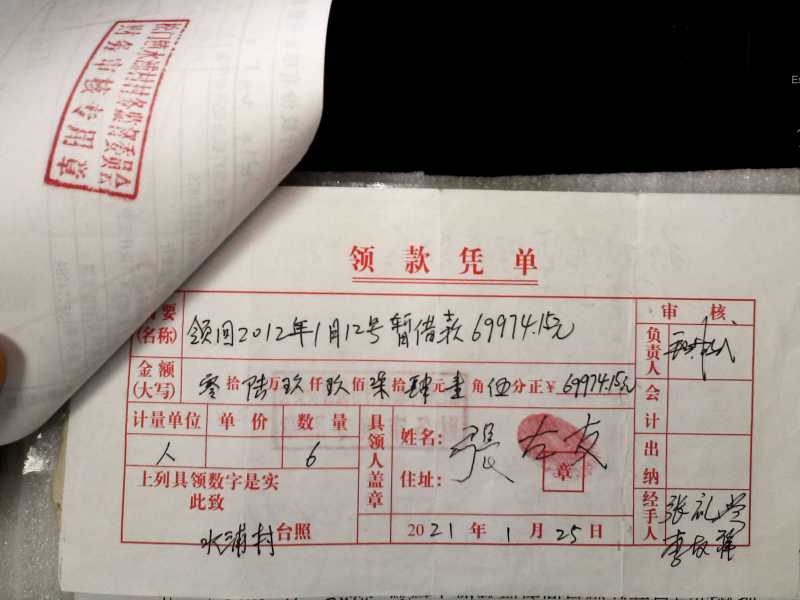 财务审核专用章
领款凭单
摘要
(名称)
领回2012年1月12号暂借款69974.15元
审核
金额
(大写)
零拾陆万玖仟玖佰柒拾肆元壹角伍分正¥69974.15元
负责人
计量单位 单价 数量
人 6
具领人盖章
姓名: 張左友
住址:
章
会计
出纳
上列具领数字是实
此致
水浦村台照
2021年1月25日
经手人
张礼兴